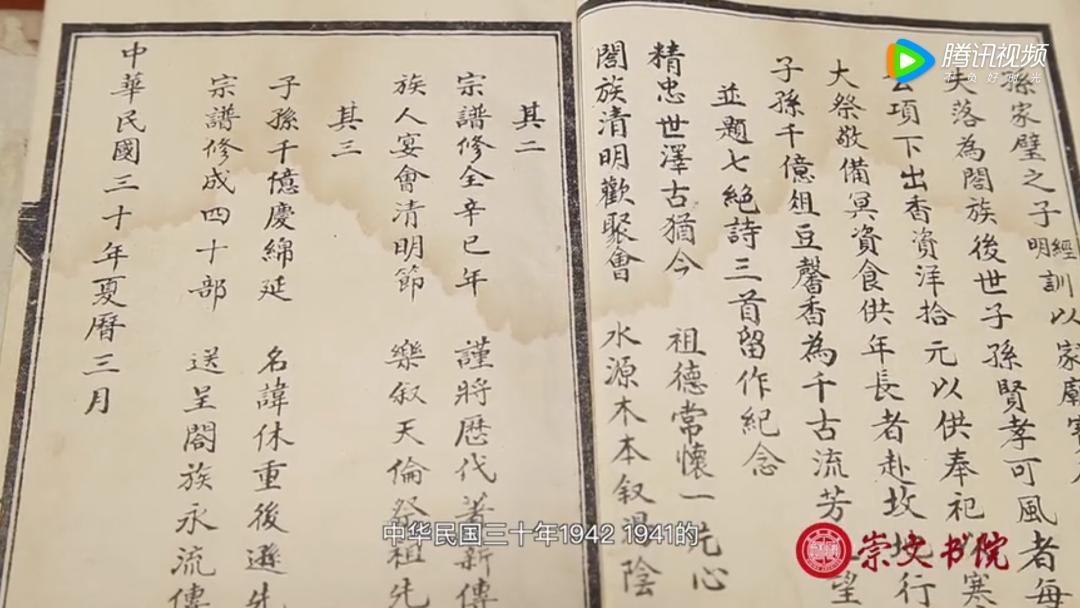 孫家璧之子經明訓以家廟
夫落為閤族後世子孫賢孝可風者每
項下出香資洋拾元以供奉祀
大祭敬備冥資食供年長者赴坟地行
子孫千億俎豆馨香為千古流芳
並題七絕詩三首留作紀念
精忠世澤古猶今 祖德常懷一片心
閤族清明歡聚會 水源木本叙湯陰
其二
宗譜修全辛巳年 謹將歷代著新傳
族人宴會清明節 樂叙天倫祭祖先
其三
子孫千億慶綿延 名諱休重後遜先
宗譜修成四十部 送呈閤族永流傳
中華民國三十年夏曆三月
腾讯视频
不负好时光
中华民国三十年1942 1941的
崇文书院